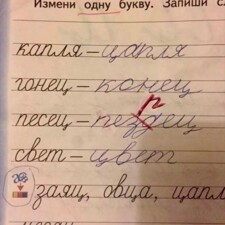 Измени одну букву. Запиши
капля – цапля
гонец – конец
песец – пездец
р
свет – цвет
заяц, овца, цапл